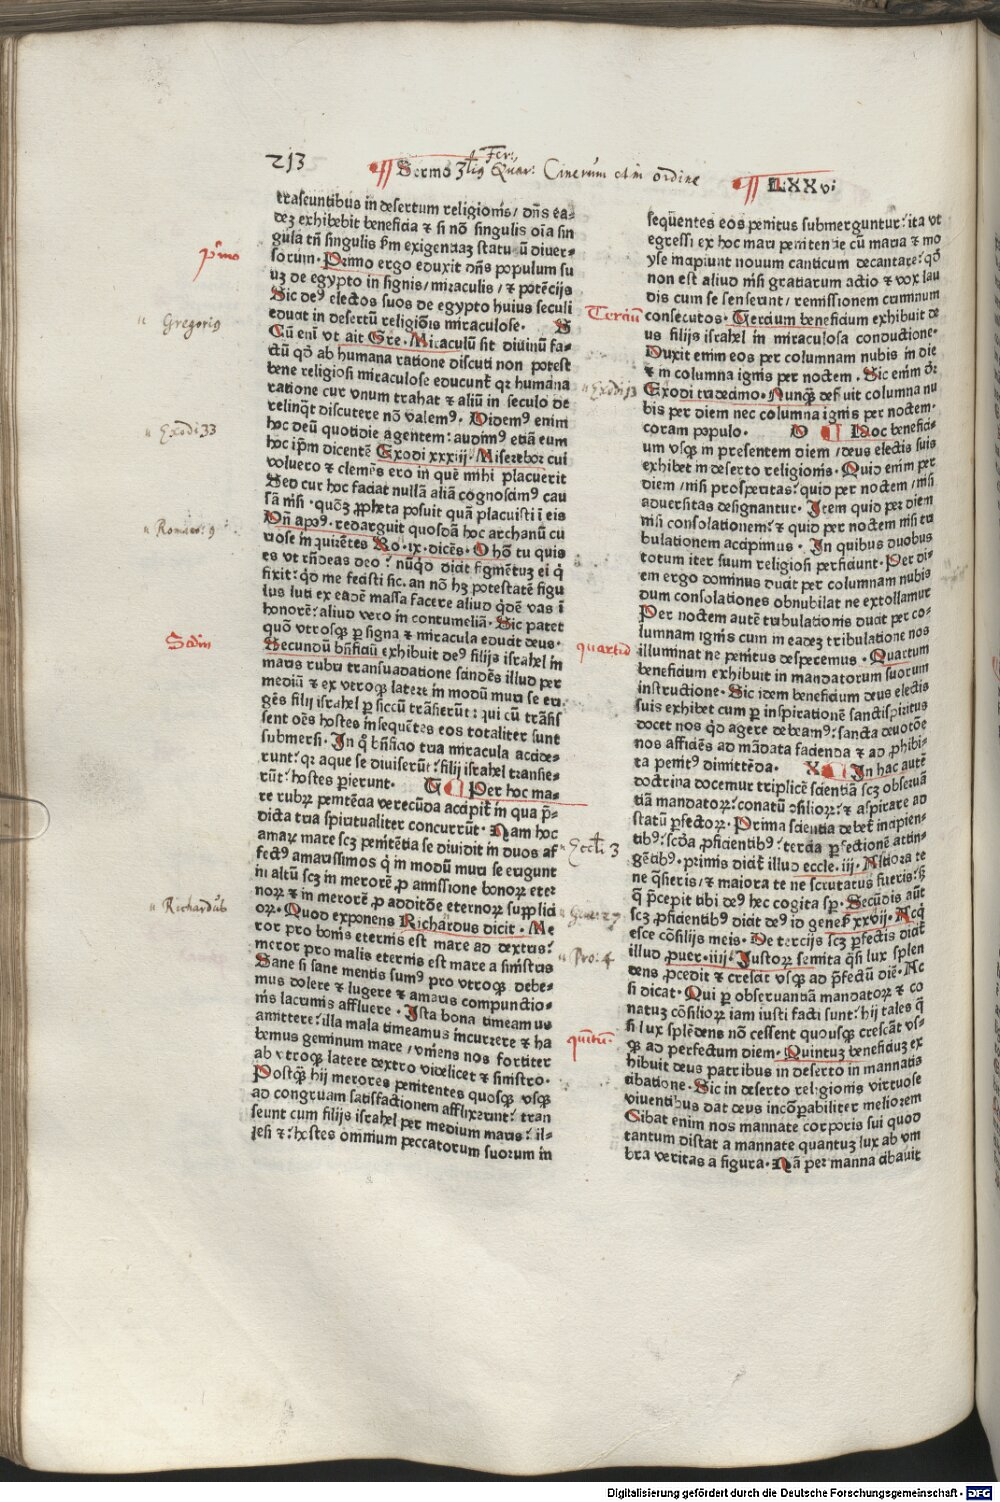 213
Sermo 3tig Fer: Quar: Cinerum et in ordine
LXXv:
traseuntibus in desertum religionis/ dn̄s ea-
dez exhibebit beneficia ⁊ si nō singulis oīa sin
gula tn̄ singulis ẜm exigentiaz statuū diuer-
sorum. Primo ergo eduxit dn̄s populum su
uz de egypto in signis/ miraculis/ ⁊ potēcijs
Sic deꝰ electos suos de egypto huius seculi
educit in desertū religiōis miraculose. S
Cū enī vt ait Gre. Miraculū sit diuinū fa-
ctū qd̄ ab humana ratione discuti non potest
bene religiosi miraculose educunt̄ qꝛ humana
ratione cur vnum trahat ⁊ aliū in seculo de
relinq̄t discutere nō valemꝰ. Videmꝰ enim
hoc deū quotidie agentem: audimꝰ etiā eum
hoc ip̄m dicentē Exodi xxxiij. Misereboꝛ cui
voluero ⁊ clemēs ero in quē mihi placuerit
Sed cur hoc faciat nullā aliā cognoscimꝰ cau
sā nisi. quoꝫ ꝓpheta posuit quā placuisti ī eis
Vn̄ apoꝰ. redarguit quosdā hoc archanū cu
riose inquirētes Ro. ix. dicēs. O hō tu quis
es vt rn̄deas deo? nūqd̄ dicit figmētuz ei q̄
fixit: qd̄ me fecisti sic. an nō hꝫ potestatē figu
lus luti ex eadē massa facere aliud qd̄ē vas ī
honorē: aliud vero in contumeliā. Sic patet
quō vtrosqꝫ ꝑ signa ⁊ miracula educit deus.
Secundū bn̄ficiū exhibuit deꝰ filijs israhel in
maris rubri transuadatione scindēs illud per
mediū ⁊ ex vtroqꝫ latere in modū muri se eri
gēs filij israhel ꝑ siccū trāsierūt: qui cū trāsis
sent oēs hostes insequētes eos totaliter sunt
submersi. In q̄ bn̄ficio tria miracula accide-
runt: qꝛ aque se diuiserūt: filij israhel transie-
rūt: hostes ꝑierunt. T Per hoc ma-
re rubꝝ penitētia verecūda accipit̄ in qua p̄-
dicta tria spiritualiter concurrūt. Nam hoc
amarꝝ mare scꝫ penitētia se diuidit in duos af
fectꝰ amarissimos q̄ in modū muri se erigunt
in altū scꝫ in merorē ꝓ amissione bonoꝝ eter
noꝝ ⁊ in merorē ꝓ additōe eternoꝝ supplici
oꝝ. Quod exponens Richardus dicit. Me
ror pro bonis eternis est mare ad dextris:
meror pro malis eternis est mare a sinistris
Sane si sane mentis sumꝰ pro vtroqꝫ debe-
mus dolere ⁊ lugere ⁊ amaris compunctio-
nis lacrimis affluere. Ista bona timeamus
amittere: illa mala timeamus incurrere ⁊ ha
bemus geminum mare/ vniens nos fortiter
ab vtroqꝫ latere dextro videlicet ⁊ sinistro.
Postqꝫ hij merores penitentes quosqꝫ vsqꝫ
ad congruam satisfactionem afflixerunt: tran
seunt cum filijs israhel per medium maris: il-
lesi ⁊: hostes omnium peccatorum suorum in
sequentes eos penitus submerguntur: ita vt
egressi ex hoc mari penitentie cū maria ⁊ mo
yse mapiunt nouum canticum decantare: qd̄
non est aliud nisi gratiarum actio ⁊ vox lau
dis cum se senserint/ remissionem criminum
consecutos. Tercium beneficium exhibuit de
us filijs israhel in miraculosa conductione.
Duxit enim eos per columnam nubis in die
⁊ in columna ignis per noctem. Sic enim dr̄:
Exodi tredecimo. Nunqꝫ defuit columna nu
bis per diem nec columna ignis per noctem.
coram populo. V Hoc benefici-
um vsqꝫ in presentem diem/ deus electis suis
exhibet in deserto religionis. Quid enim per
diem/ nisi prosperitas: quid per noctem/ nisi
aduersitas designantur. Item quid per diem
nisi consolationem: ⁊ quid per noctem nisi tri
bulationem accipimus. In quibus duobus
totum iter suum religiosi perficiunt. Per di-
em ergo dominus ducit per columnam nubis
dum consolationes obnubilat ne extollamur
Per noctem autē tribulationis ducit per co-
lumnam ignis cum in eadez tribulatione nos
illuminat ne penitus desperemus. Quartum
beneficium exhibuit in mandatorum suorum
instructione. Sic idem beneficium deus electis
suis exhibet cum ꝑ inspirationē sanctispiritus
docet nos qd̄ agere debeamꝰ: sancta deuotōe
nos afficiēs ad mādata facienda ⁊ ad ꝓhibi-
ta penitꝰ dimittēda. X In hac autē
doctrina docemur triplicē scientiā scꝫ obseruā
tiā mandatoꝝ: conatū ꝯsilioꝝ: ⁊ aspirare ad
statū ꝑfectoꝝ. Prima scientia debet̄ incipien-
tibꝰ: scd̄a ꝓficientibꝰ: tercia ꝑfectionē attin-
gētibꝰ. primis dicit̄ illud eccle. iij. Altiora te
ne q̄sieris/ ⁊ maiora te ne scrutatus fueris: sꝫ
q̄ p̄cepit tibi deꝰ hec cogita sꝑ. Secūdis aūt
scꝫ ꝓficientibꝰ dicit deꝰ id geneꝝ xxvij. Acq̄
esce cōsilijs meis. De tercijs scꝫ ꝑfectis dicit̄
illud ꝓuer. iiij. Iustoꝝ semita q̄si lux splen
dens ꝓcedit ⁊ crescit vsqꝫ ad ꝑfectū diē. Ac
si dicat. Qui ꝑ obseruantiā mandatoꝝ ⁊ co
natuz cōsilioꝝ iam iusti facti sunt: hij tales q̄
si lux splēdens nō cessent quousqꝫ crescāt vs-
qꝫ ad perfectum diem. Quintuz beneficiuz ex
hibuit deus patribus in deserto in mannatis
cibatione. Sic in deserto religionis virtuose
viuentibus dat deus incōꝑabiliter meliorem
Cibat enim nos mannate corporis sui quod
tantum distat a mannate quantuz lux ab vm
bra veritas a figura. Nā per manna cibauit
p̄mo
Gregoriꝰ
Exodi 33
Romanos: 9
Scd̄m
Richardus
Terciū
Exodi 13
quartū
Eccli 3
Gene: 27
Pro: 4
quītū
Digitalisierung gefördert durch die Deutsche Forschungsgemeinschaft - DFG